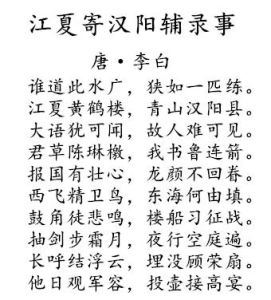 江夏寄汉阳辅录事
唐·李白
谁道此水广，狭如一匹练。
江夏黄鹤楼，青山汉阳县。
大语犹可闻，故人难可见。
君草陈琳檄，我书鲁连箭。
报国有壮心，龙颜不回眷。
西飞精卫鸟，东海何由填。
鼓角徒悲鸣，楼船习征战。
抽剑步霜月，夜行空庭遍。
长呼结浮云，埋没顾荣扇。
他日观军容，投壶接高宴。